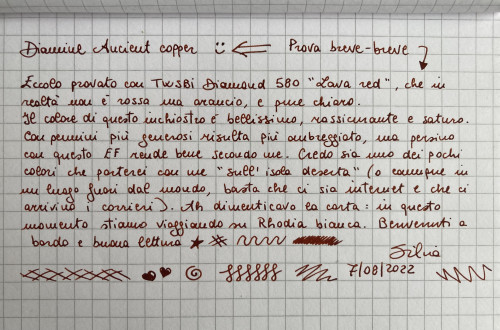 Diamine Ancient copper Prova breve-breve
Eccolo provato con TWSBI Diamond 580 "Lava red", che in
realtà non è rossa ma arancio, e pure chiaro.
Il colore di questo inchiostro è bellissimo, rassicurante e saturo.
Con pennini più generosi risulta più ombreggiato, ma persino
con questo EF rende bene secondo me. Credo sia uno dei pochi
colori che porterei con me "sull'isola deserta" (o comunque in
un luogo fuori dal mondo, basta che ci sia internet e che ci
arrivino i corrieri). Ah dimenticavo la carta: in questo
momento stiamo viaggiando su Rhodia bianca. Benvenuti a
bordo e buona lettura
Silvia
7/08/2022